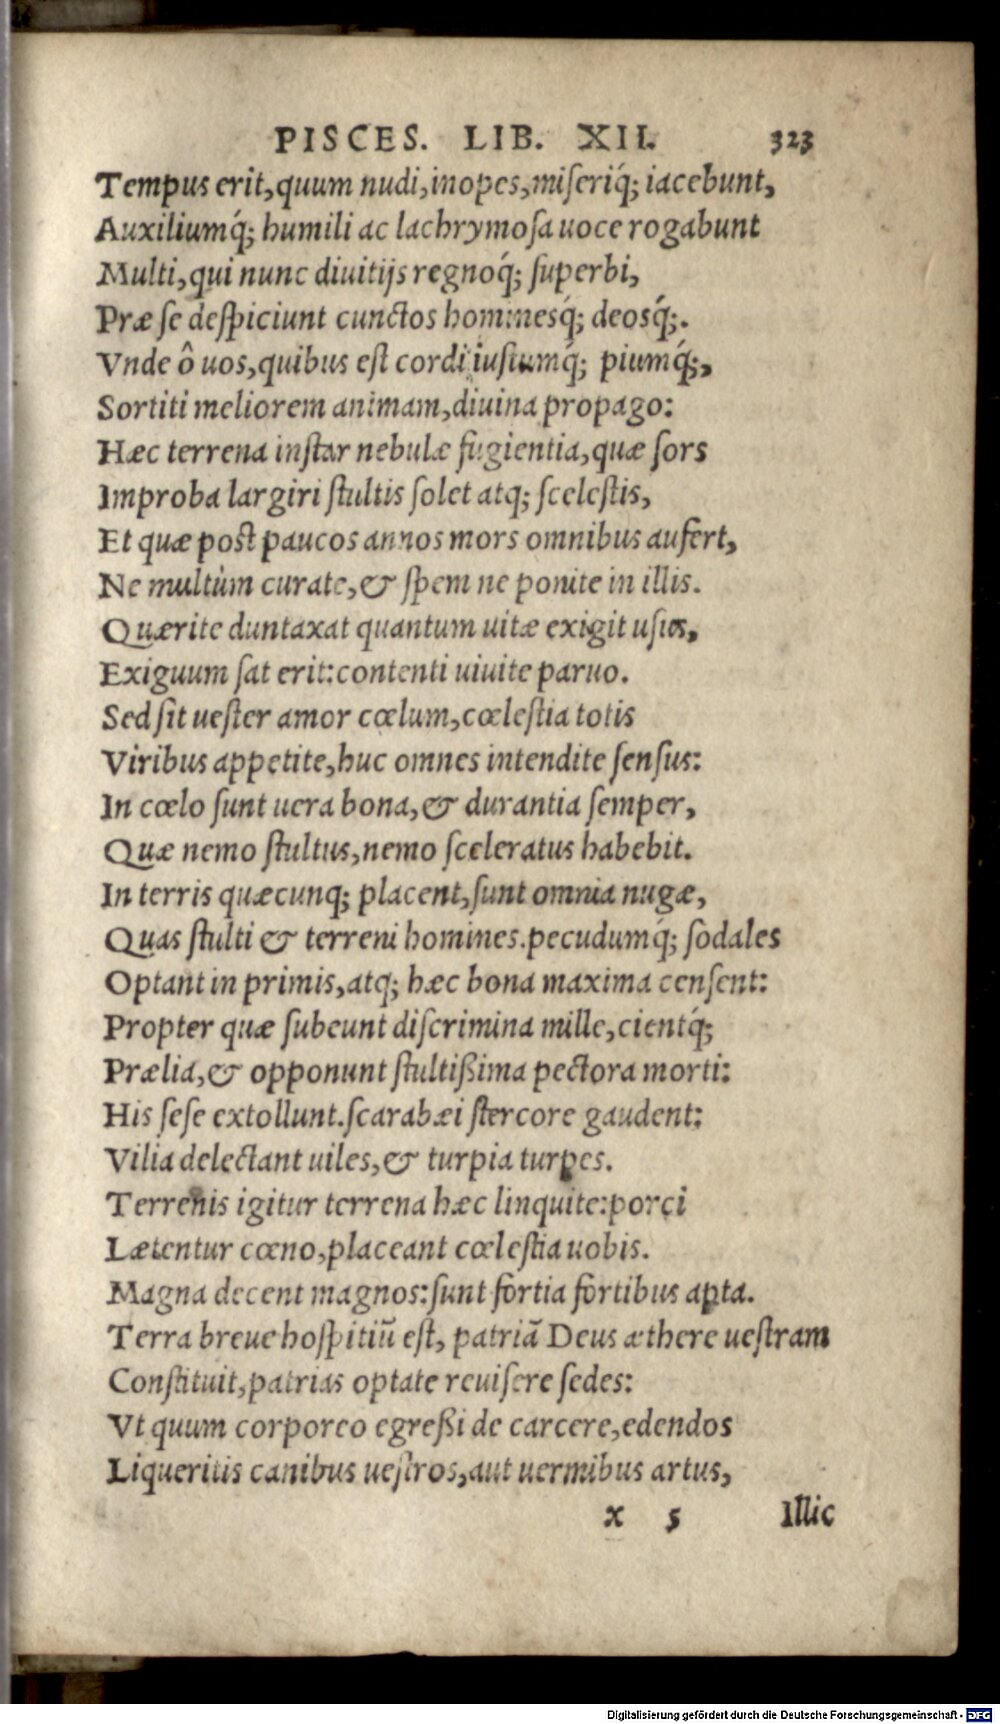 PISCES. LIB. XII. 323
Tempus erit, quum nudi, inopes, miseriq́; iacebunt,
Auxiliumq́; humili ac lachrymosa uoce rogabunt
Multi, qui nunc diuitijs regnoq́; superbi,
Præ se despiciunt cunctos hominesq́; deosq́;.
Vnde ô uos, quibus est cordi iustumq́; piumq́;,
Sortiti meliorem animam, diuina propago:
Hæc terrena instar nebulæ fugientia, quæ sors
Improba largiri stultis solet atq; scelestis,
Et quæ post paucos annos mors omnibus aufert,
Ne multùm curate, & spem ne ponite in illis.
Quærite duntaxat quantum uitæ exigit usus,
Exiguum sat erit: contenti uiuite paruo.
Sed sit uester amor cœlum, cœlestia totis
Viribus appetite, huc omnes intendite sensus:
In cœlo sunt uera bona, & durantia semper,
Quæ nemo stultus, nemo sceleratus habebit.
In terris quæcunq; placent, sunt omnia nugæ,
Quas stulti & terreni homines. pecudumq́; sodales
Optant in primis, atq; hæc bona maxima censent:
Propter quæ subeunt discrimina mille, cientq́;
Prælia, & opponunt stultißima pectora morti:
His sese extollunt. scarabæi stercore gaudent:
Vilia delectant uiles, & turpia turpes.
Terrenis igitur terrena hæc linquite: porci
Lætentur cœno, placeant cœlestia uobis.
Magna decent magnos: sunt fortia fortibus apta.
Terra breue hospitiū est, patriā Deus æthere uestram
Constituit, patrias optate reuisere sedes:
Vt quum corporeo egreßi de carcere, edendos
Liqueritis canibus uestros, aut uermibus artus,
x 5 Illic
Digitalisierung gefördert durch die Deutsche Forschungsgemeinschaft - DFG